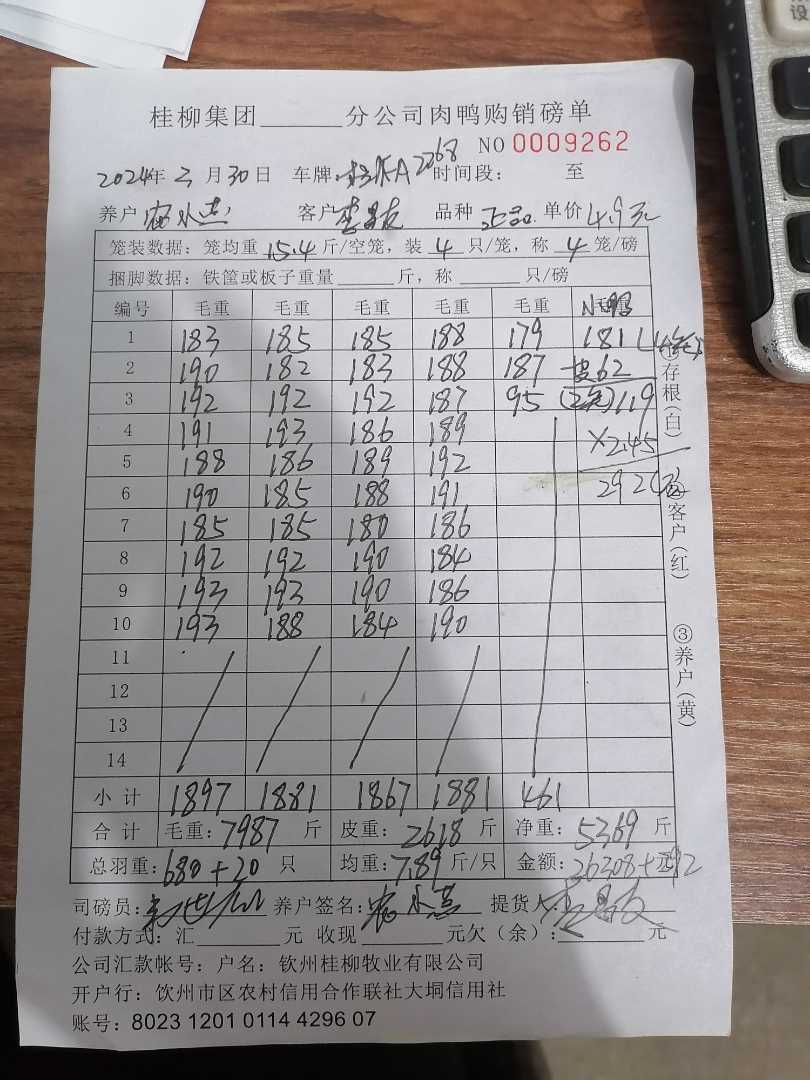 桂柳集团______分公司肉鸭购销磅单
NO 0009262
2024年 3 月 30日 车牌: A2068 时间段: 至
养户 客户 品种 正品. 单价 4.9元
笼装数据: 笼均重 15.4 斤/空笼, 装 4 只/笼, 称 4 笼/磅
捆脚数据: 铁筐或板子重量______斤, 称______只/磅
编号 毛重 毛重 毛重 毛重 毛重
1 183 185 185 188 179 181
2 190 182 183 188 187 皮62
3 192 192 192 187 95 119
4 191 193 186 189 ×2.45
5 188 186 189 192
6 190 185 188 191 292
7 185 185 180 186
8 192 192 190 184
9 193 193 190 186
10 193 188 184 190
11
12
13
14
小计 1897 1881 1867 1881 461
合计 毛重: 7987 斤 皮重: 2618 斤 净重: 5369 斤
总羽重: 680+20 只 均重: 7.89 斤/只 金额: 26308+292 元
司磅员: 养户签名: 提货人:
付款方式: 汇______元 收现______元欠（余）:______元
公司汇款帐号: 户名: 钦州桂柳牧业有限公司
开户行: 饮州市区农村信用合作联社大垌信用社
账号: 8023 1201 0114 4296 07
①存根（白）
②客户（红）
③养户（黄）